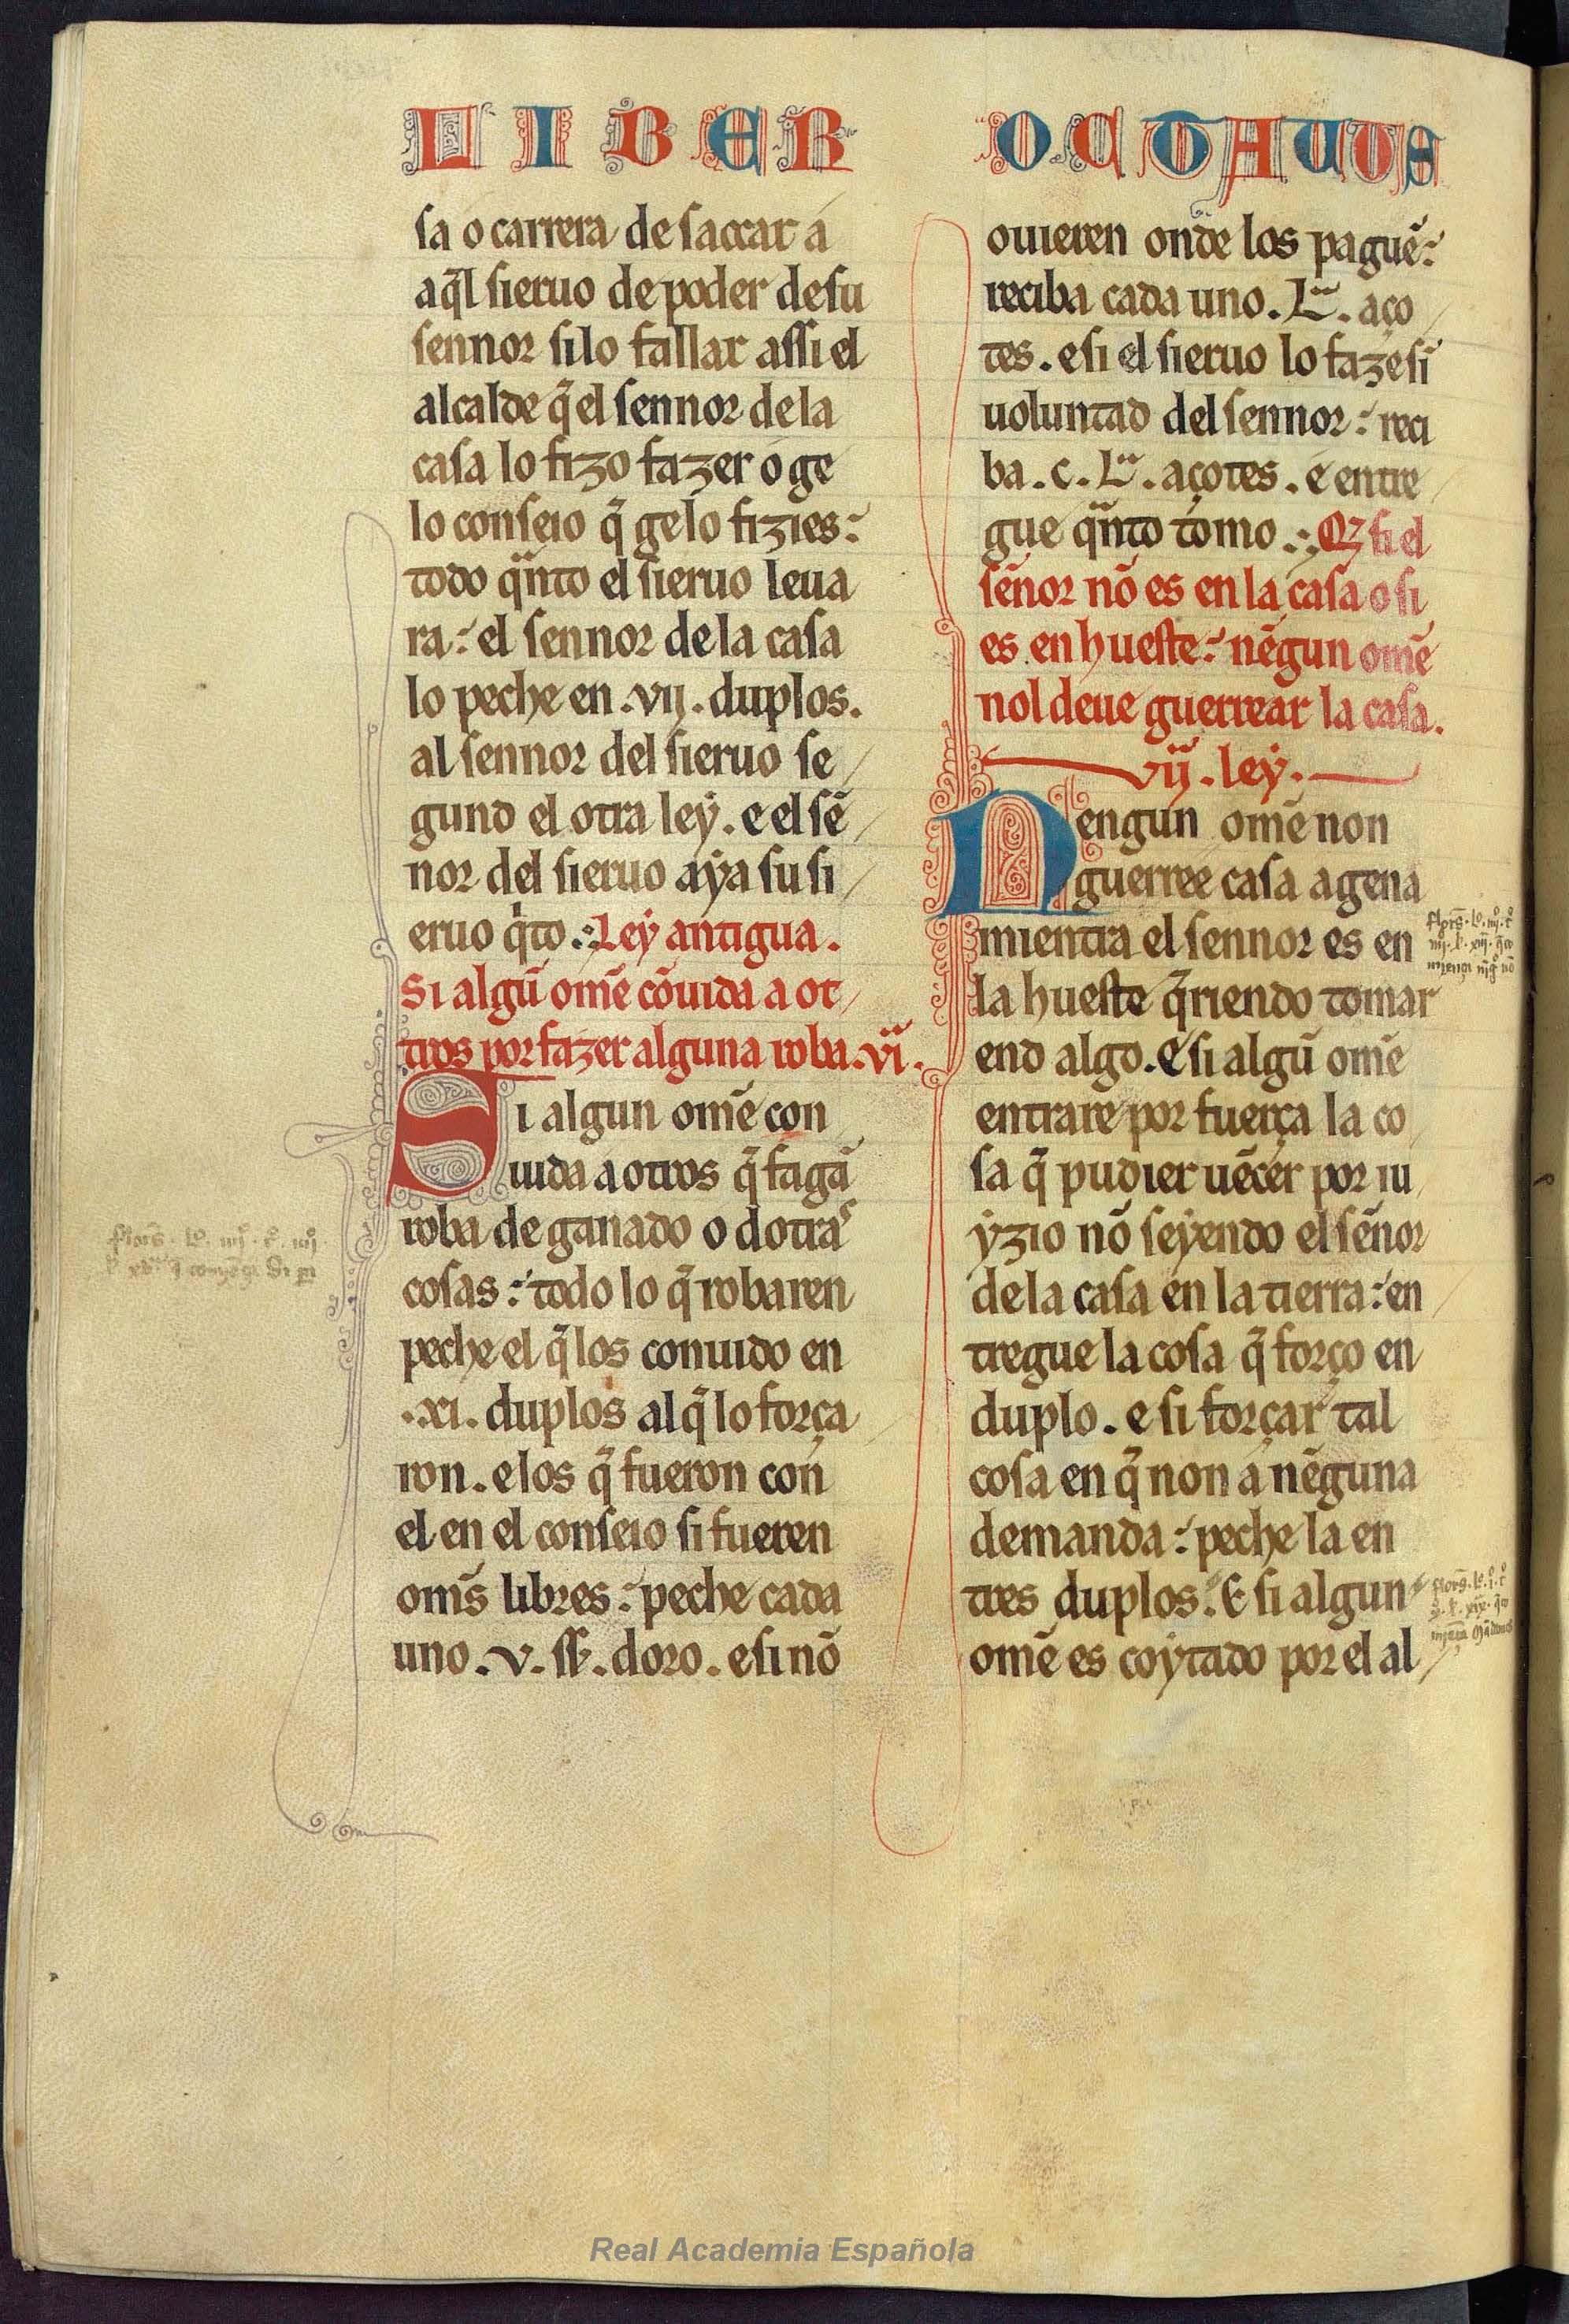 LIBER
sa o carrera de saccar a
aq̃l sieruo de poder de su
sennor si lo fallar assi el
alcalde q̃ el sennor de la
casa lo fizo fazer o ge
lo conseio q̃ ge lo fizies:
todo qᵃnto el sieruo leua
ra: el sennor de la casa
lo peche en .vij. duplos.
al sennor del sieruo se
gund el otra ley. e el sẽ
nor del sieruo aya su si
eruo qⁱto. Ley antigua.
Si algũ omẽ cõuida a ot
tros por fazer alguna roba. vi.
Si algun omẽ con
uida a otros q̃ fagã
roba de ganado o dotras
cosas: todo lo q̃ robaren
peche el q̃ los conuido en
.xi. duplos al q̃ lo força
ron. e los q̃ fueron con
el en el conseio si fueren
om̃s libres: peche cada
uno .v. ss̃. doro. e si nõ
OCTAUUS
ouieren onde los paguẽ:
reciba cada uno. L. aço
tes. e si el sieruo lo faze si
uoluntad del sennor: reci
ba .c. L. açotes. e entre
gue qᵃnto tomo. Qz si el
sẽnor nõ es en la casa o si
es en hueste: nẽgun omẽ
nol deue guerrear la casa.
vij. ley.
Nengun omẽ non
guerree casa agena
mientra el sennor es en
la hueste q̃riendo tomar
end algo. E si algũ omẽ
entrare por fuerça la co
sa q̃ pudier uẽcer por iu
yzio nõ seyendo el sẽnor
de la casa en la tierra: en
tregue la cosa q̃ forço en
duplo. e si forçar tal
cosa en q̃ non a nẽguna
demanda: peche la en
tres duplos. E si algun
omẽ es coytado por el al
Real Academia Española